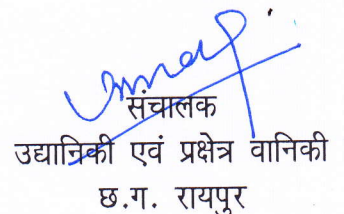 संचालक
उद्यानिकी एवं प्रक्षेत्र वानिकी
छ.ग. रायपुर